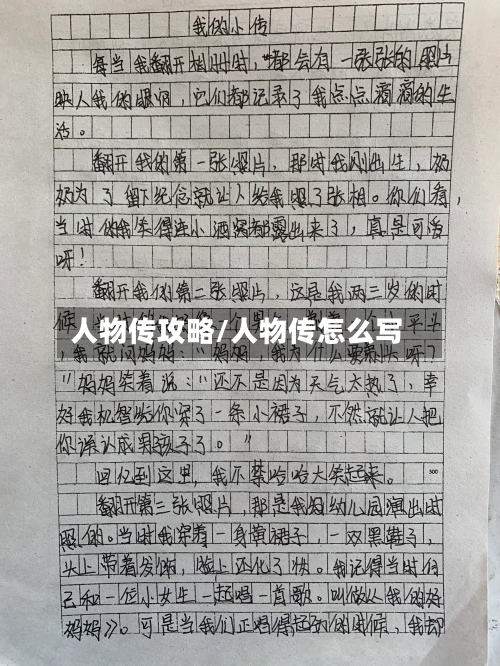 我的小传
每当我翻开相册时，都会有一张张的照片
映入我的眼帘，它们都记录了我点点滴滴的生
活。
翻开我的第一张照片，那时我刚出生，奶
奶为了留下纪念就让人给我照了张相。你们看，
当时的我笑得连小酒窝都露出来了，真是可爱
呀！
翻开我的第二张照片，这是我两三岁的时
候
平斗
人物传攻略/人物传怎么写
，我就问妈妈："妈妈，我为什么要剃头呀？
"妈妈笑着说："还不是因为天气太热了，幸
好我机智给你穿了一条小裙子，不然就让人把
你误认成男孩子了。"
回忆到这里，我不禁哈哈大笑起来。
300
翻开第三张照片，那是我幼儿园演出时
照的。当时我穿着一身黄裙子，一双黑鞋子，
头上带着发饰，脸上还化了妆。我记得当时自
己和一位小女生一起唱一首歌。叫做《我的好
妈妈》。可是当我们正唱得起劲的时候，我却